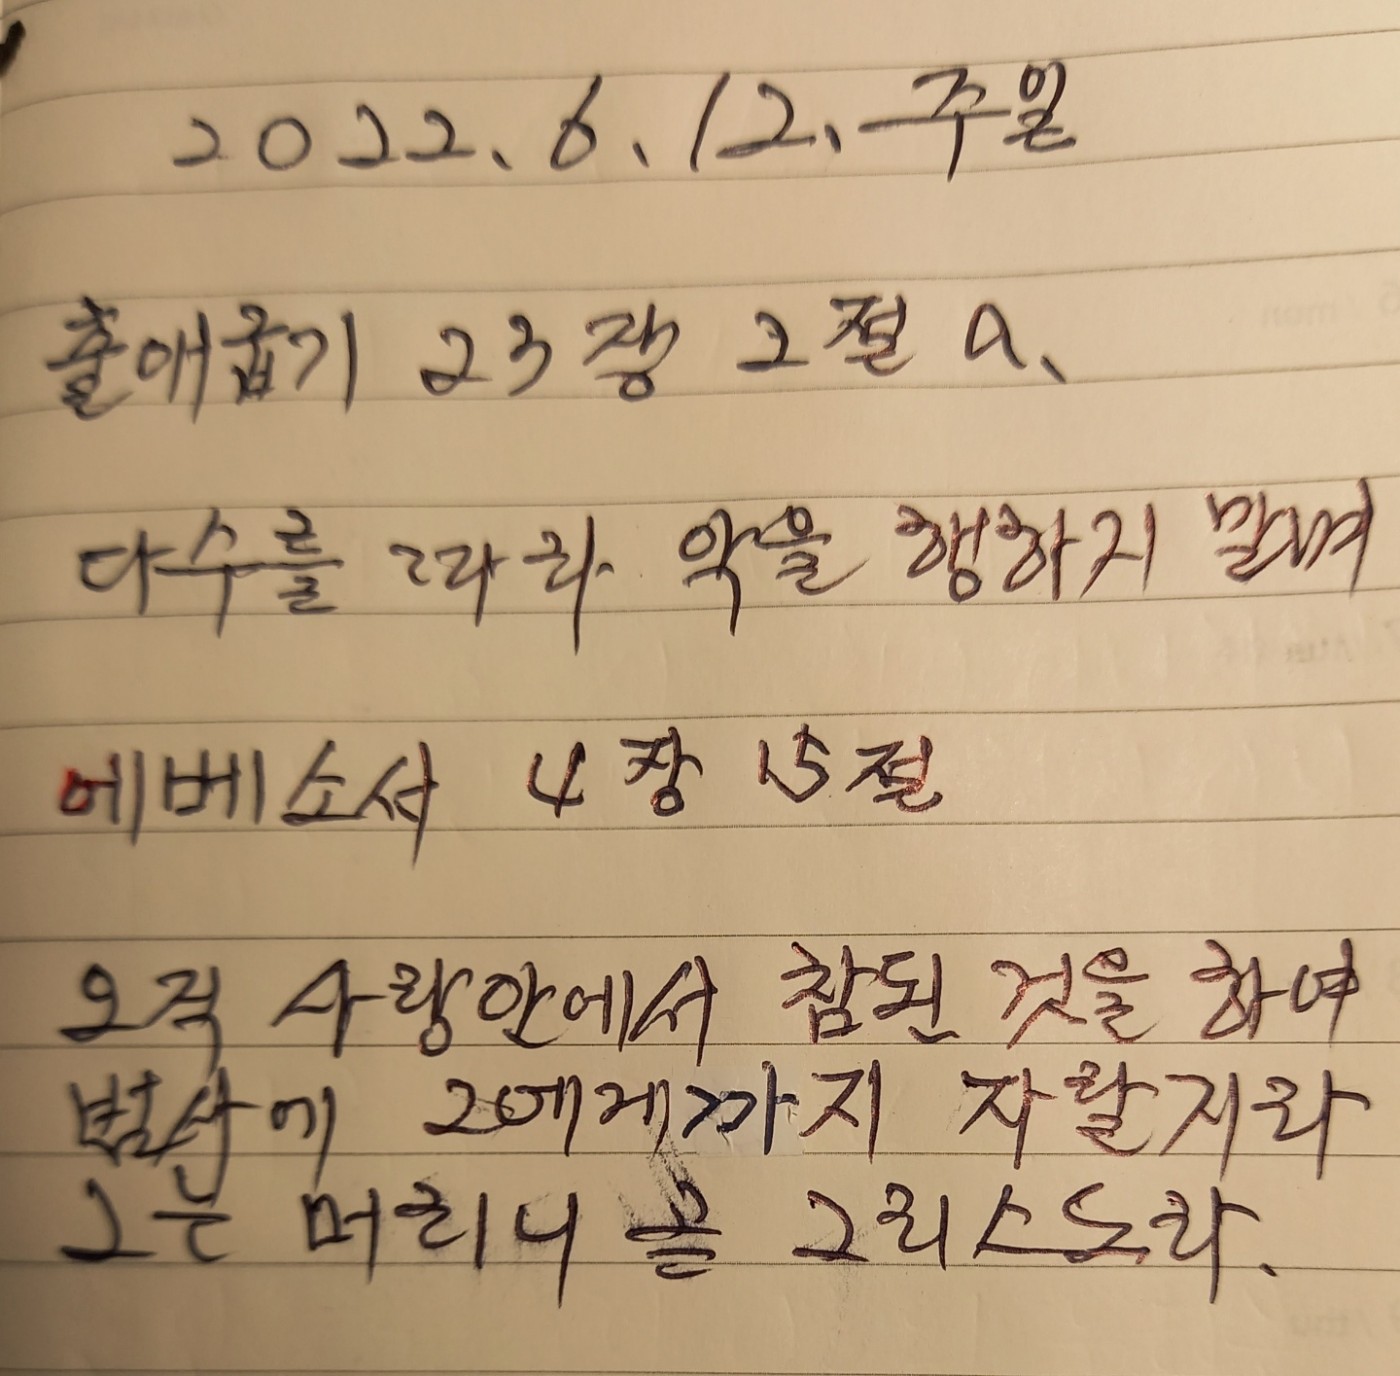 2022. 6. 12. 주일
출애굽기 23장 2절 a.
다수를 따라 악을 행하지 말며
에베소서 4장 15절
오직 사랑안에서 참된 것을 하여
범사에 그에게까지 자랄지라
그는 머리니 곧 그리스도라.